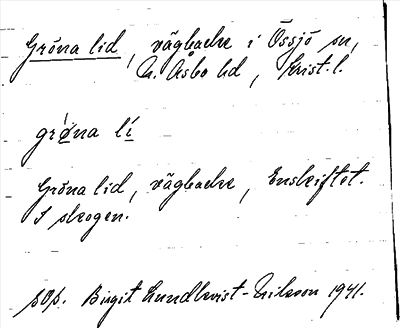 Gröna lid, vägbacke i Össjö sn,
N. Åsbo hd, Krist. l.
grøna lí
Gröna lid, vägbacke, Enskiftet.
I skogen.
pop. Birgit Lundkvist-Nilsson 1941.